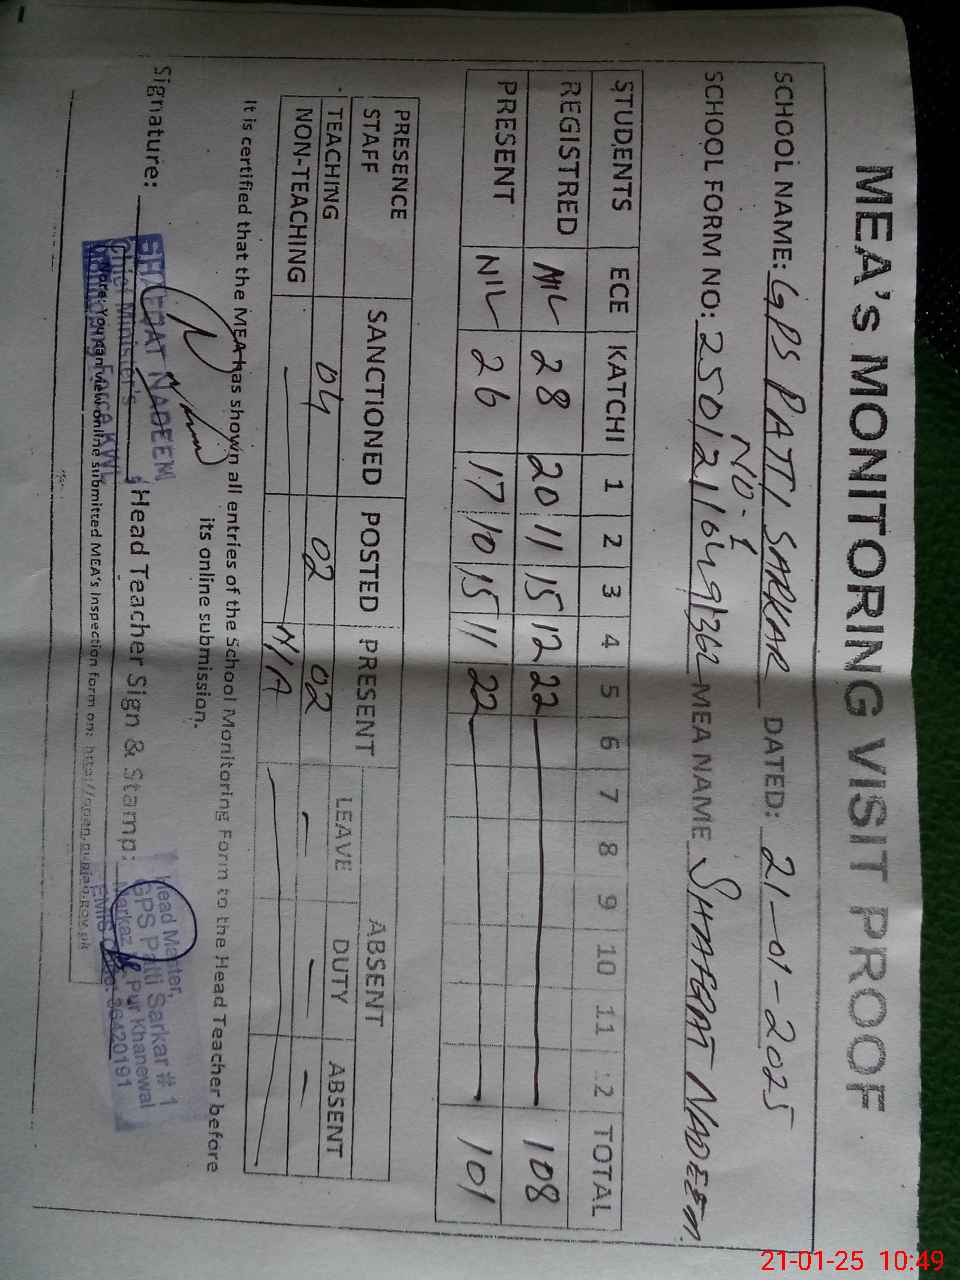 MEA's MONITORING VISIT PROOF
SCHOOL NAME: GPS PATTI SARKAR NO-1 DATED: 21-01-2025
SCHOOL FORM NO: MEA NAME SHAFQAT NADEEM
STUDENTS ECE KATCHI 1 2 3 4 5 6 7 8 9 10 11 12 TOTAL
REGISTRED NIL 28 20 11 15 12 22 108
PRESENT NIL 26 17 10 15 11 22 101
PRESENCE STAFF SANCTIONED POSTED PRESENT ABSENT
LEAVE DUTY ABSENT
TEACHING 04 02 02 — — —
NON-TEACHING — N/A
It is certified that the MEA has shown all entries of the School Monitoring Form to the Head Teacher before
its online submission.
Signature: Head Teacher Sign & Stamp:
SHAFQAT NADEEM
Chie Minister's
Monitoring Force KWL
Head Master,
GPS Patti Sarkar # 1
Markaz Pur Khanewal
EMIS Code: 36420191
Note: You can view online submitted MEA's Inspection form on: http://open.punjab.gov.pk
21-01-25 10:49